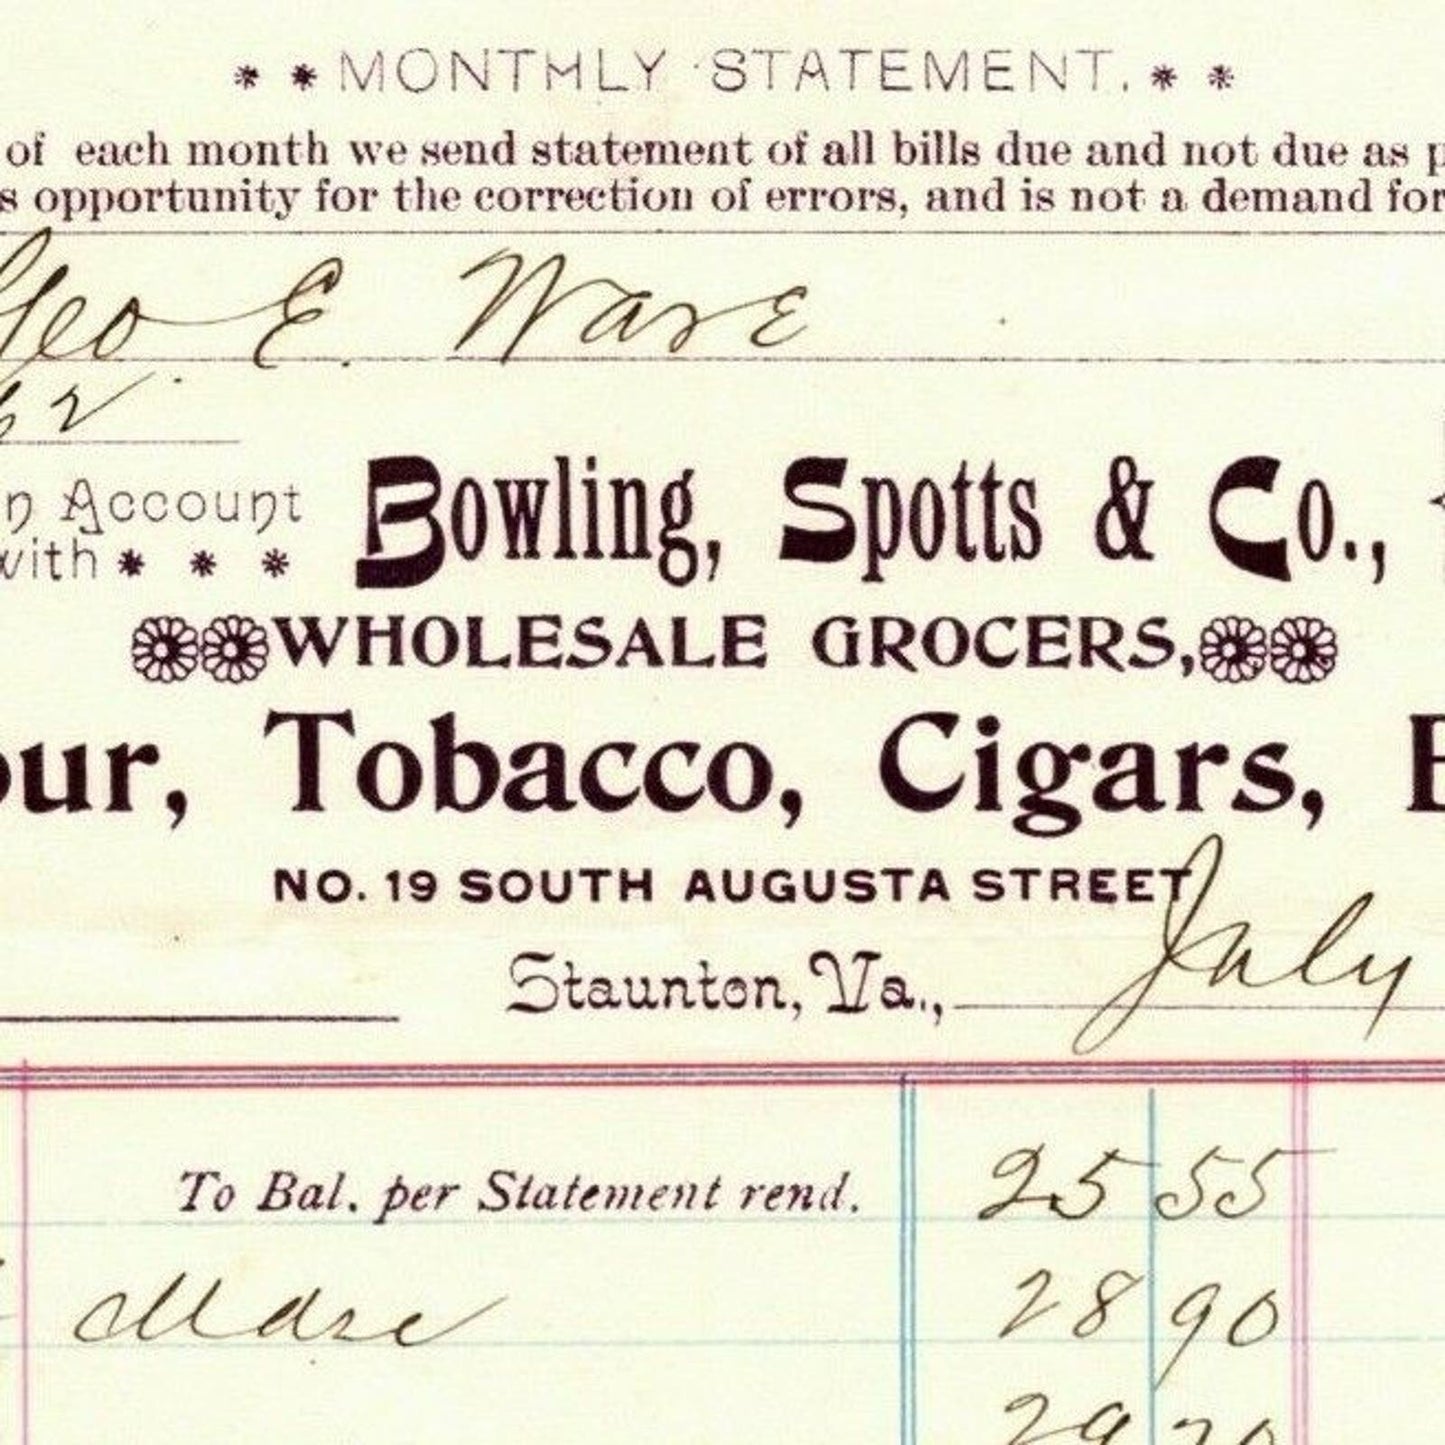 MONTHLY STATEMENT.
of each month we send statement of all bills due and not due as
s opportunity for the correction of errors, and is not a demand for
Geo E. Ware
n Account
with
Bowling, Spotts & Co.,
WHOLESALE GROCERS,
our, Tobacco, Cigars,
NO. 19 SOUTH AUGUSTA STREET
Staunton, Va., July
To Bal. per Statement rend. 25 55
Mdse 28 90
29 20